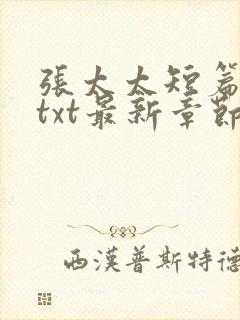 張太太短篇
txt最新章節
西漢普斯特德